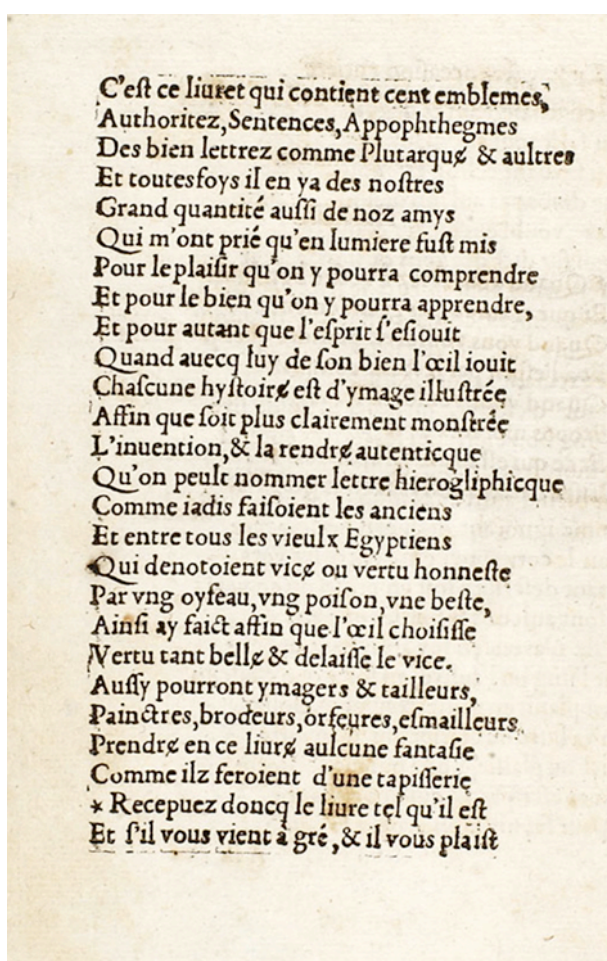 C'eſt ce liuret qui contient cent emblemes,
Authoritez,Sentences,Appophthegmes
Des bien lettrez comme Plutarquɇ & aultres
Et toutesfoys il en ya des noſtres
Grand quantité auſſi de noz amys
Qui m'ont prié qu'en lumiere fuſt mis
Pour le plaiſir qu'on y pourra comprendre
Et pour le bien qu'on y pourra apprendre,
Et pour autant que l'eſprit ſ'eſiouit
Quand auecq luy de ſon bien l'œil iouit
Chaſcune hyſtoirɇ eſt d'ymage illuſtréę
Affin que ſoit plus clairement monſtréę
L'inuention,& la rendrɇ autenticque
Qu'on peult nommer lettre hierogliphicque
Comme iadis faiſoient les anciens
Et entre tous les vieulx Egyptiens
Qui denotoient vicɇ ou vertu honneſte
Par vng oyſeau,vng poiſon,vne beſte,
Ainſi ay faict affin que l'œil choiſiſſe
Vertu tant bellɇ & delaiſſe le vice.
Auſſy pourront ymagers & tailleurs,
Painctres,brodeurs,orfeures,eſmailleurs
Prendrɇ en ce liurɇ aulcune fantaſie
Comme ilz feroient d'une tapiſſerię
* Recepuez doncq le liure tel qu'il eſt
Et ſ'il vous vient à gré,& il vous plaiſt